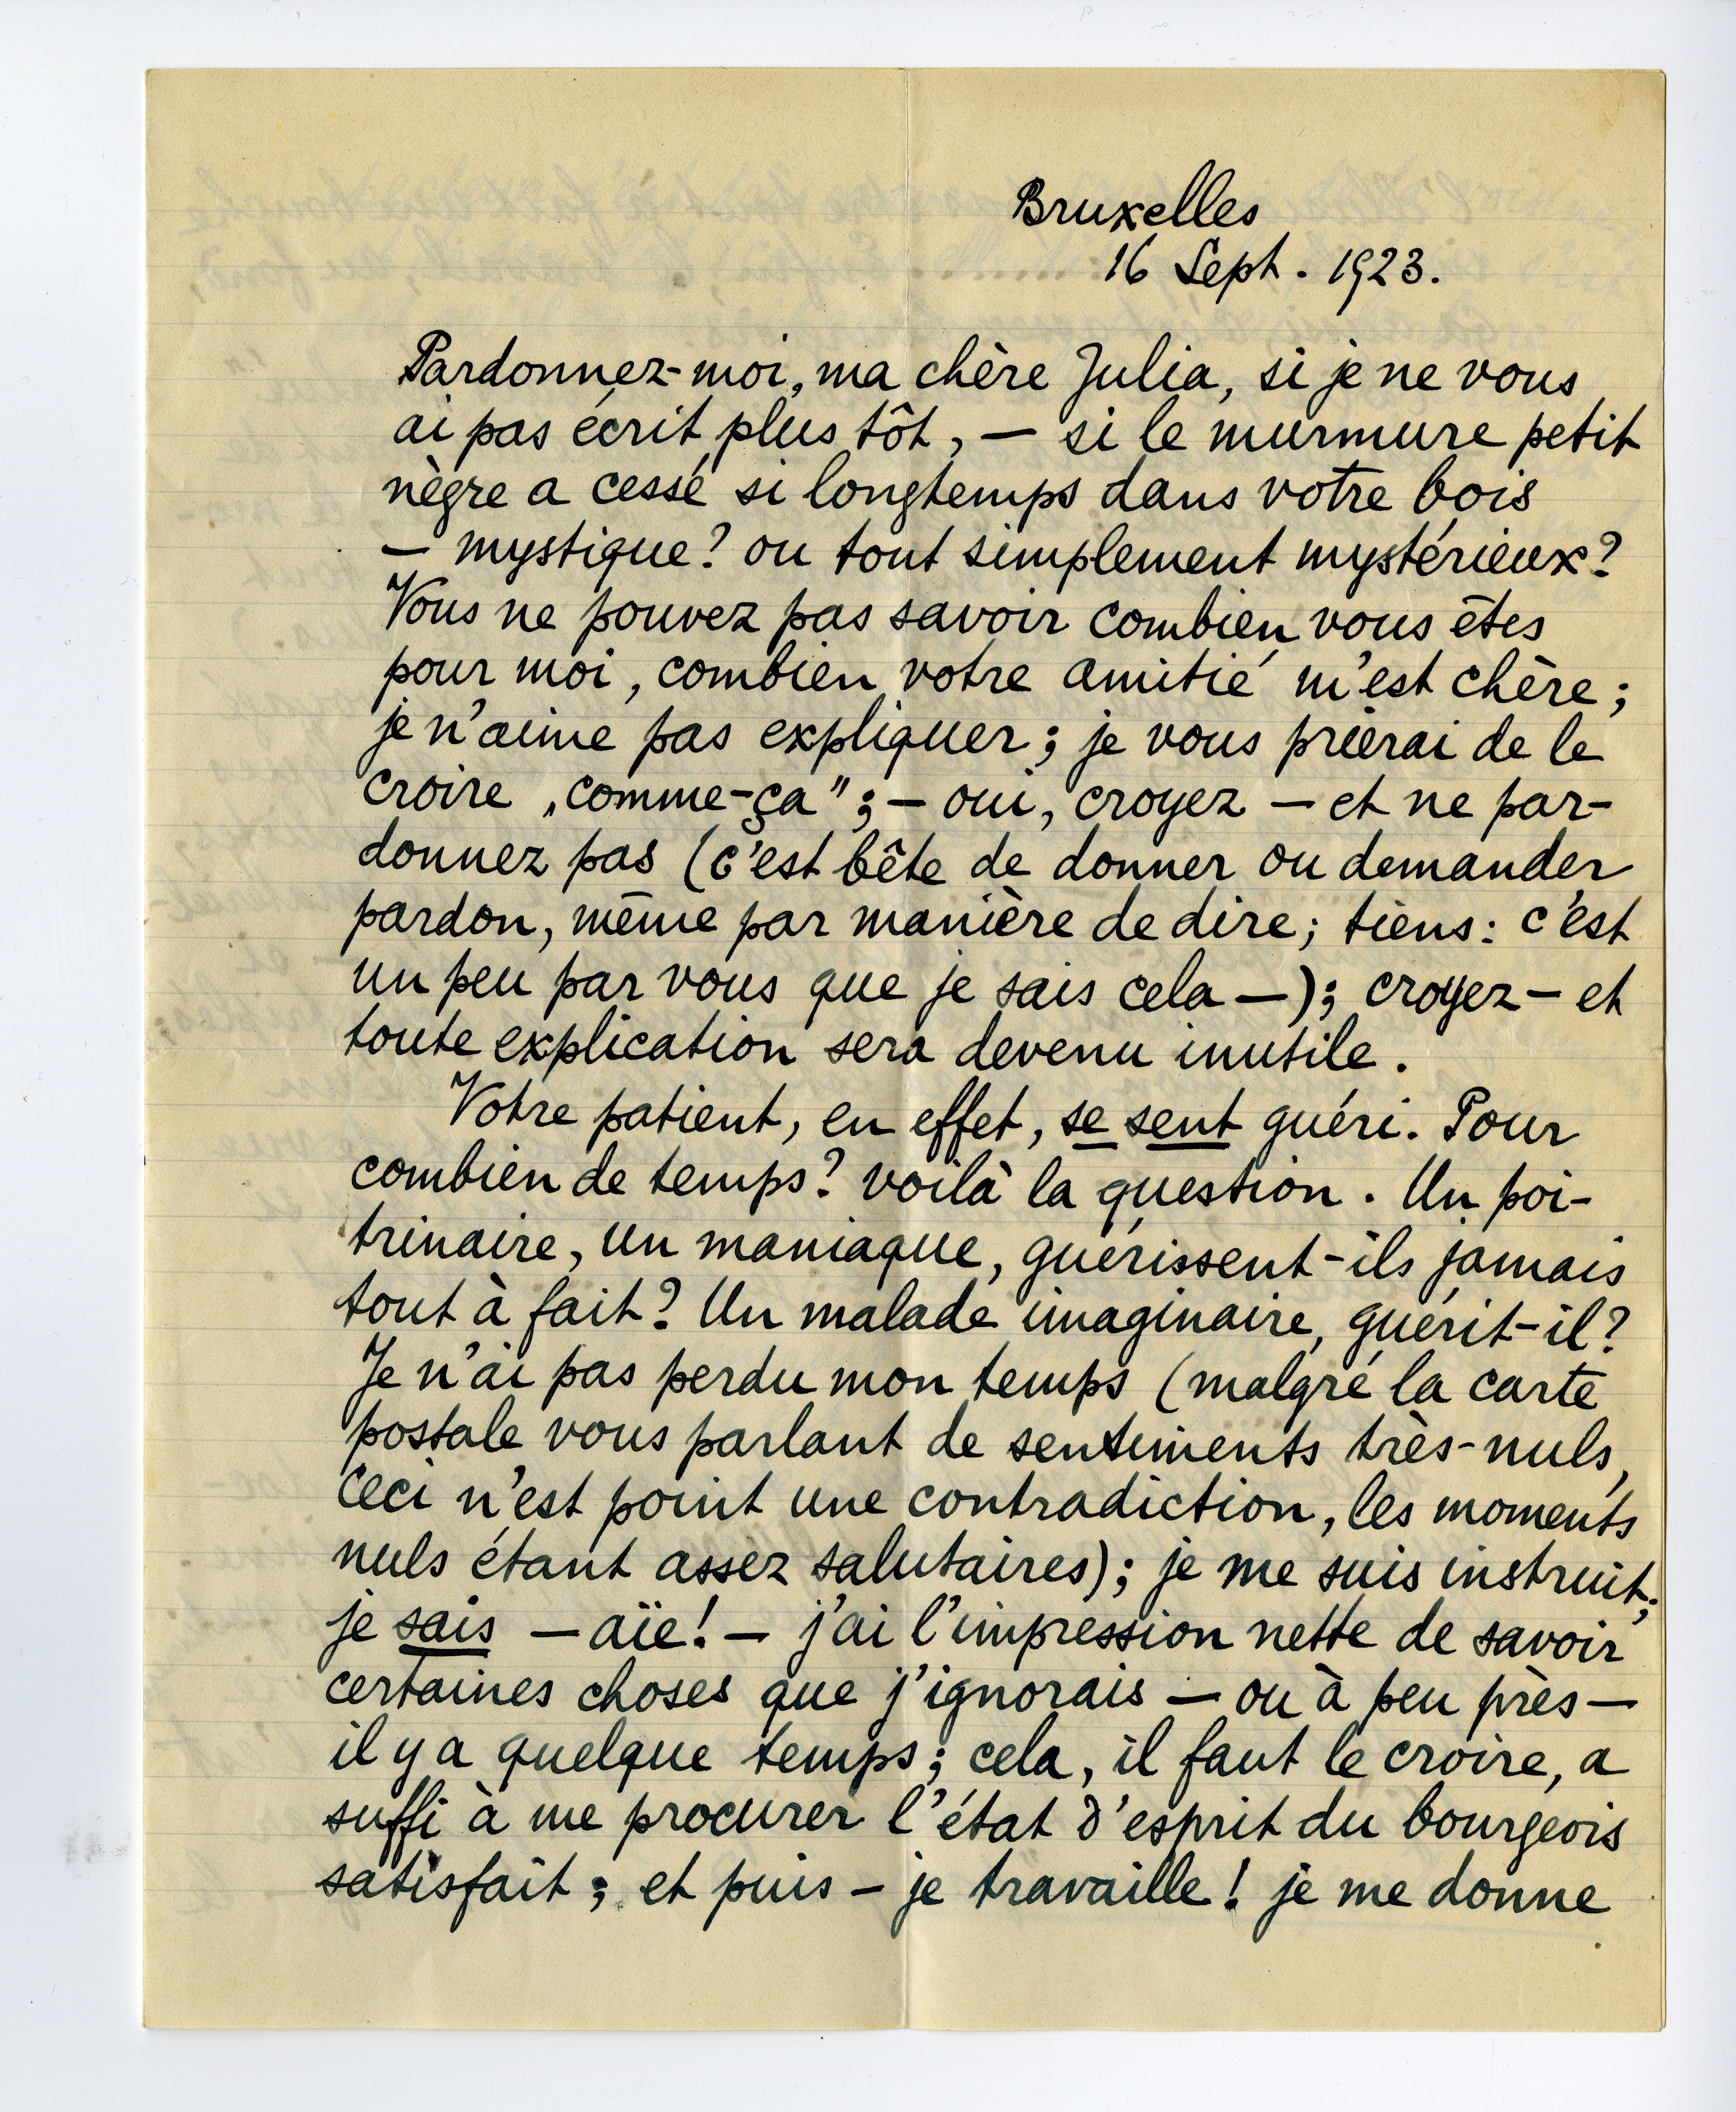 Bruxelles
16 Sept. 1923.
Pardonnez-moi, ma chère Julia, si je ne vous
ai pas écrit plus tôt, — si le murmure petit
nègre a cessé si longtemps dans votre bois
— mystique? ou tout simplement mystérieux?
Vous ne pouvez pas savoir combien vous êtes
pour moi, combien votre amitié m'est chère;
je n'aime pas expliquer; je vous prierai de le
croire „comme-ça"; — oui, croyez — et ne par-
donnez pas (c'est bête de donner ou demander
pardon, même par manière de dire; tiens: c'est
un peu par vous que je sais cela —); croyez — et
toute explication sera devenu inutile.
Votre patient, en effet, se sent guéri. Pour
combien de temps? voilà la question. Un poi-
trinaire, un maniaque, guérissent-ils jamais
tout à fait? Un malade imaginaire, guérit-il?
Je n'ai pas perdu mon temps (malgré la carte
postale vous parlant de sentiments très-nuls,
ceci n'est point une contradiction, les moments
nuls étant assez salutaires); je me suis instruit;
je sais — aïe! — j'ai l'impression nette de savoir
certaines choses que j'ignorais — ou à peu près —
il y a quelque temps; cela, il faut le croire, a
suffi à me procurer l'état d'esprit du bourgeois
satisfait; et puis — je travaille! je me donne